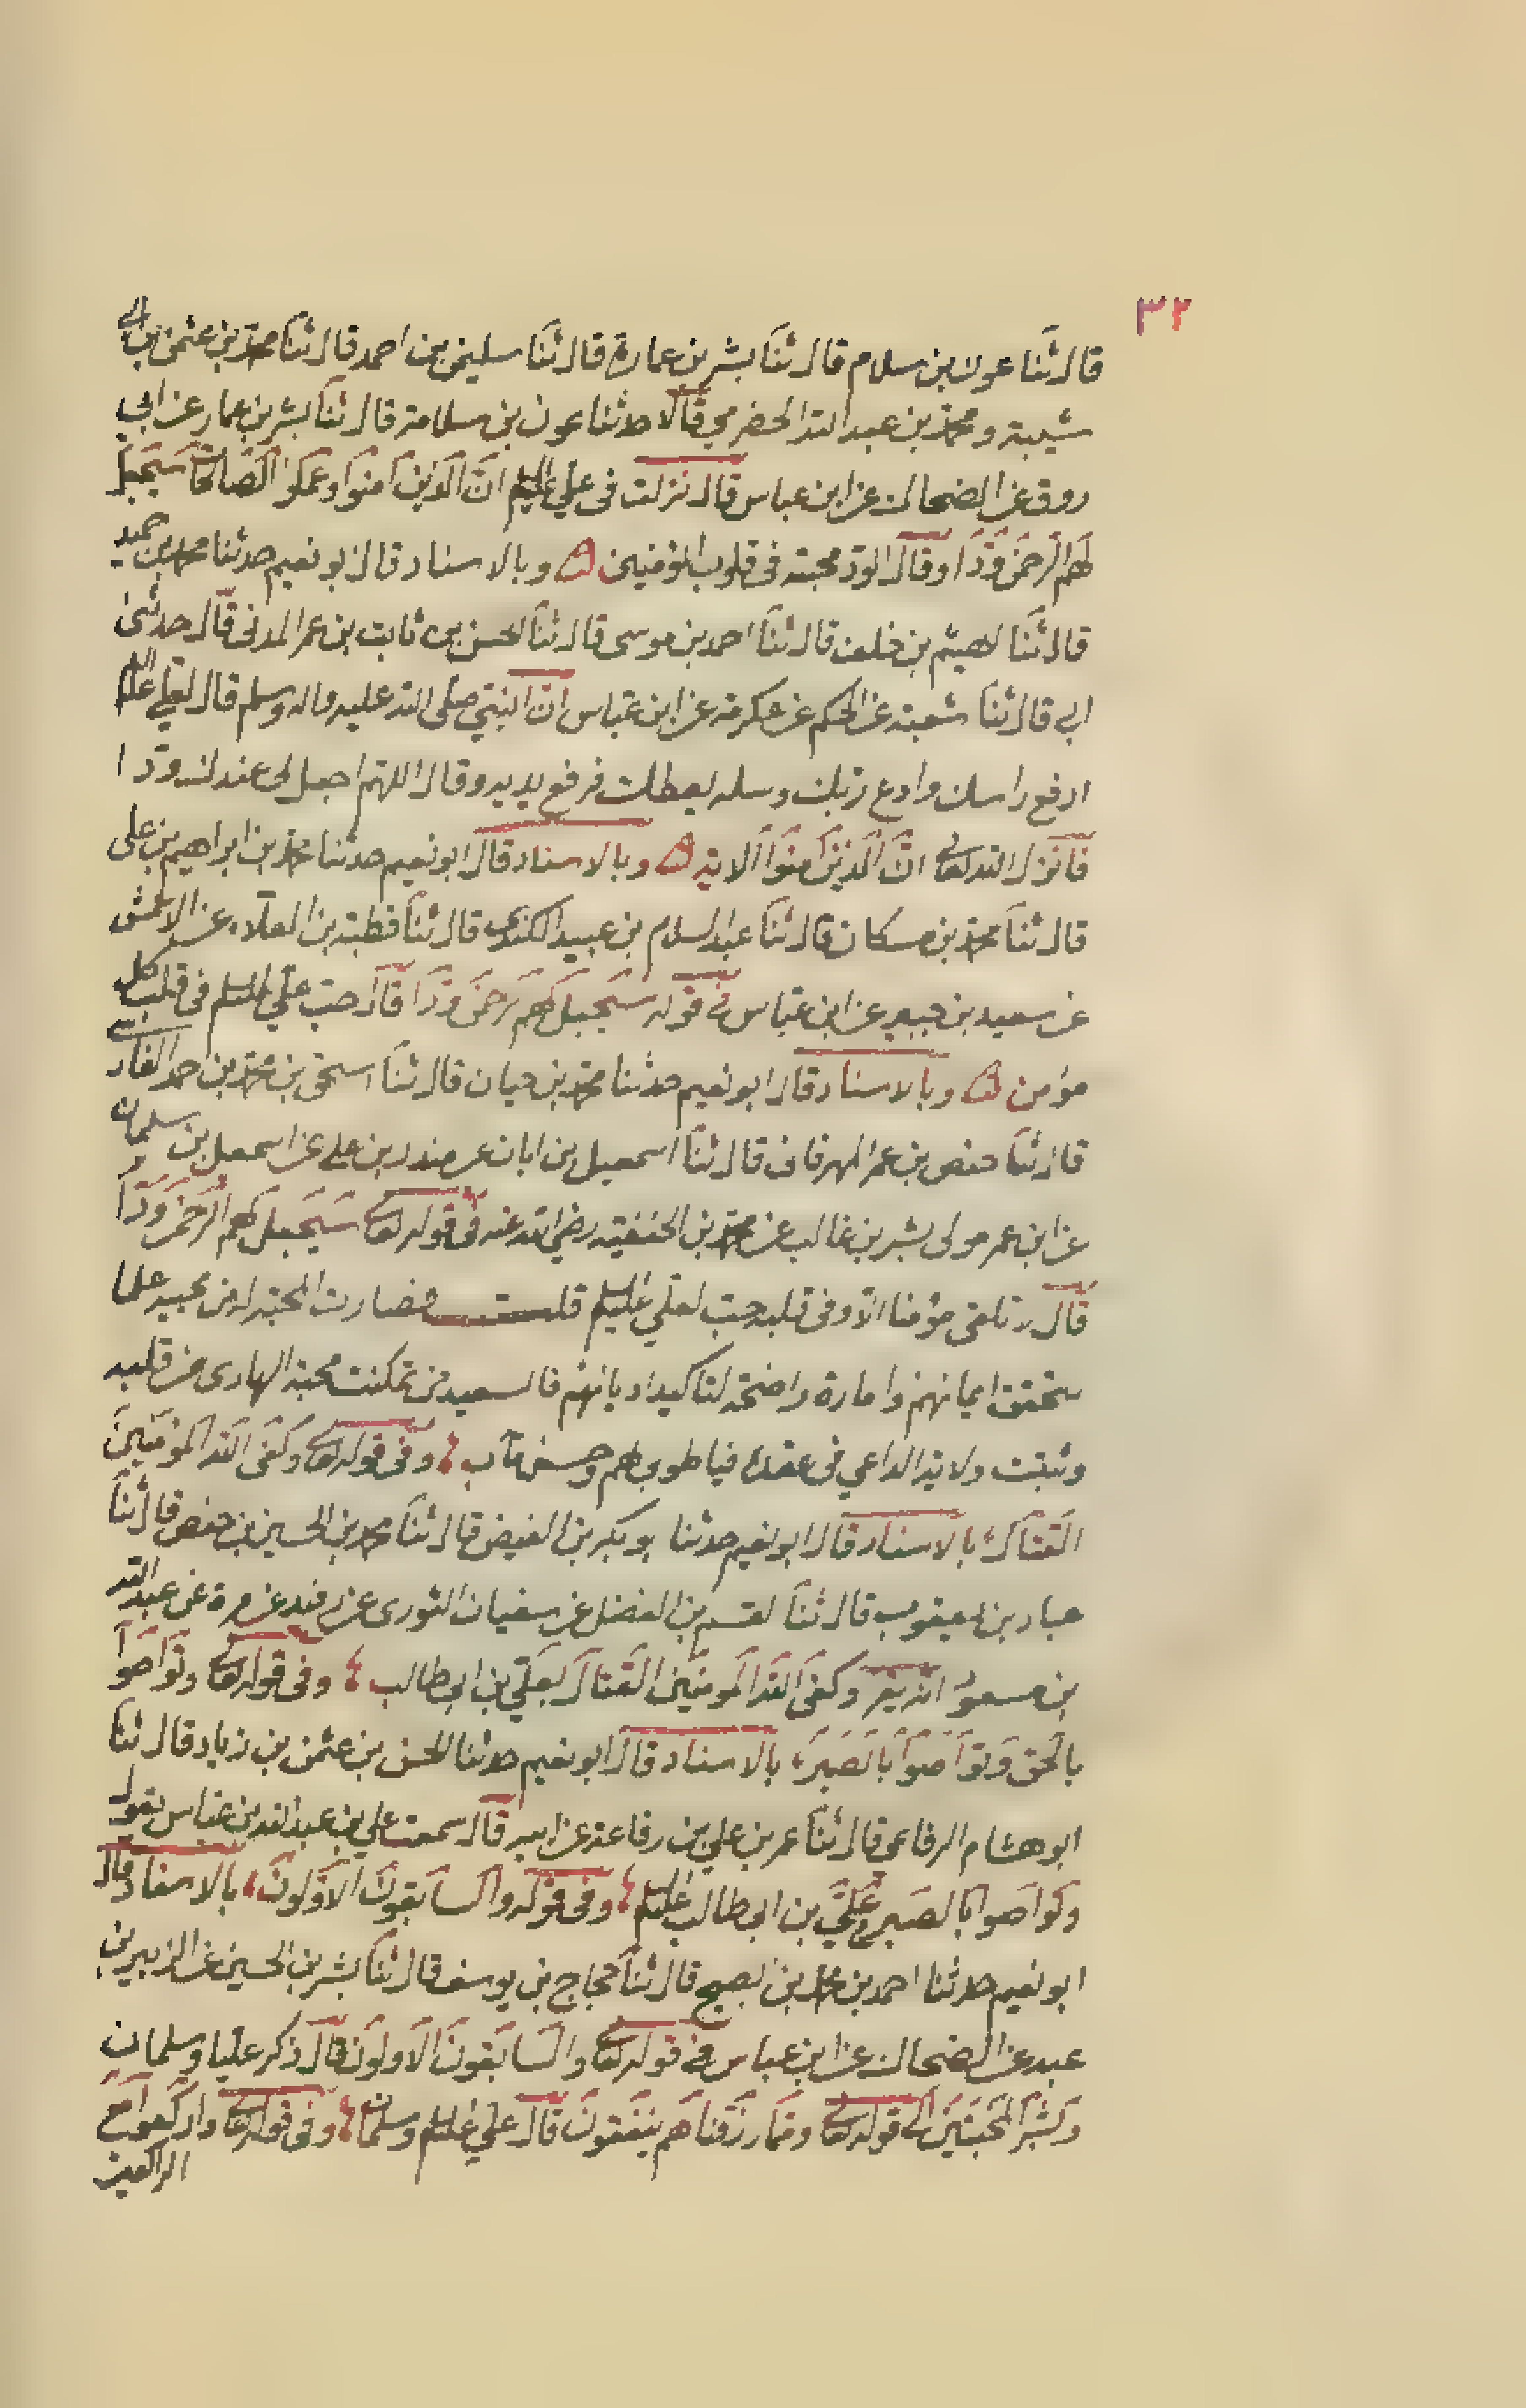 ٣٢
قال ثنا عون بن سلام قال ثنا بشر بن عمارة قال ثنا سليمن بن احمد قال ثنا محمد بن عثمن بن ابي
شيبة ومحمد بن عبد الله الحضرمي قالا حدثنا عون بن سلامة قال ثنا بشر بن عمار عن ابي
روق عن الضحاك عن ابن عباس قال نزلت في علي عليه السلم ان الذين امنوا وعملوا الصالحات سيجعل
لهم الرحمن ودا وقال الود محبته في قلوب المؤمنين ه وبالاسناد قال ابو نعيم حدثنا محمد بن حميد
قال ثنا الهيثم بن خلف قال ثنا احمد بن موسى قال ثنا الحسن بن ثابت بن عمر المدني قال حدثني
ابي قال ثنا شعبة عن الحكم عن عكرمة عن ابن عباس ان النبي صلى الله عليه واله وسلم قال لعلي عليه السلم
ارفع راسك وادع ربك وسله يعطك فرفع يديه وقال اللهم اجعل لي عندك ودا
فانزل الله تعالى ان الذين امنوا الاية ه وبالاسناد قال ابو نعيم حدثنا محمد بن ابراهيم بن علي
قال ثنا محمد بن مسكان قال ثنا عبد السلام بن عبيد الكندي قال ثنا قطبة بن العلاء عن الاعمش
عن سعيد بن جبير عن ابن عباس في قوله سيجعل لهم الرحمن ودا قال حب علي عليه السلم في قلب كل
مؤمن ه وبالاسناد قال ابو نعيم حدثنا محمد بن حيان قال ثنا اسحق بن محمد بن احمد الفارسي
قال ثنا حفص بن عمر المهرقاني قال ثنا اسمعيل بن ابان عن مندر بن علي عن اسمعيل بن سلمان
عن ابن عمر مولى بشر بن غالب عن محمد بن الحنفية رضي الله عنه في قوله تعالى سيجعل لهم الرحمن ودا
قال لا تلقى مؤمنا الا وفي قلبه حب لعلي عليه السلم قلت فصارت المحبة لمن يحبه علما
بتحقق ايمانهم وامارة واضحة لتاكيد اديانهم فالسعيد من تمكنت محبة الهادي من قلبه
وثبتت ولاية الداعي في عقده فيا طوبى لهم وحسن مآب وفي قوله تعالى وكفى الله المؤمنين
القتال بالاسناد قال ابو نعيم حدثنا ابو بكر بن الفيض قال ثنا محمد بن الحسين بن حفص قال ثنا
عباد بن يعقوب قال ثنا القسم بن الفضل عن سفيان الثوري عن زفند عن مرة عن عبد الله
بن مسعود انه يقرء وكفى الله المومنين القتال بعلي بن ابي طالب وفي قوله تعالى وتواصوا
بالحق وتواصوا بالصبر بالاسناد قال ابو نعيم حدثنا الحسن بن عثمن بن زياد قال ثنا
ابو هشام الرفاعي قال ثنا عمر بن علي بن رفاعة عن ابيه قال سمعت علي بن عبد الله بن عباس يقول
وتواصوا بالصبر علي بن ابي طالب عليه السلم وفي قوله والسابقون الاولون بالاسناد قال
ابو نعيم حدثنا احمد بن محمد بن صبيح قال ثنا حجاج بن يوسف قال ثنا بشر بن الحسين عن الزبير بن
عبد عن الضحاك عن ابن عباس في قوله تعالى والسابقون الاولون قال ذكر عليا وسلمان
وبشر المخبتين الى قوله تعالى ومما رزقناهم ينفقون قال علي عليه السلم وسلمان وفي قوله تعالى واركعوا مع
الراكعين